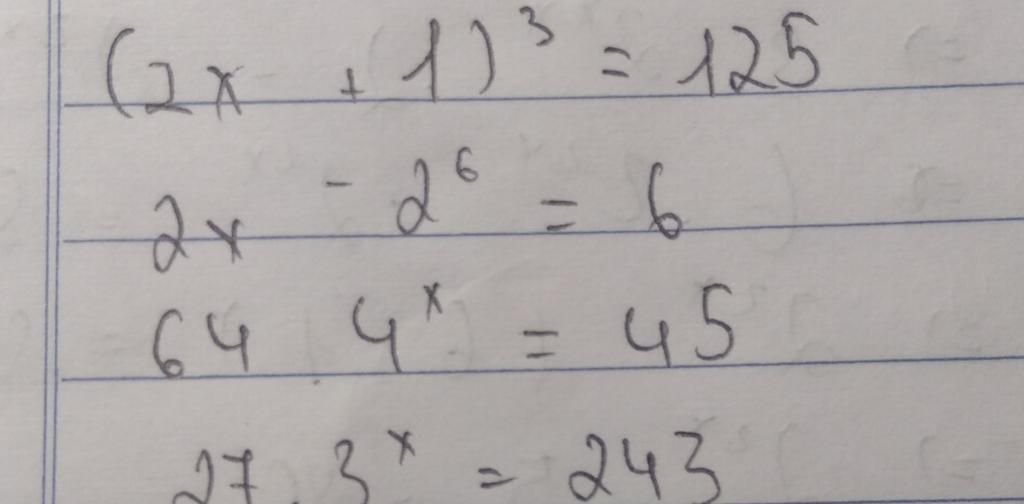 (2x + 1)³ = 125
2x - 2⁶ = 6
64 4ˣ = 45
27. 3ˣ = 243